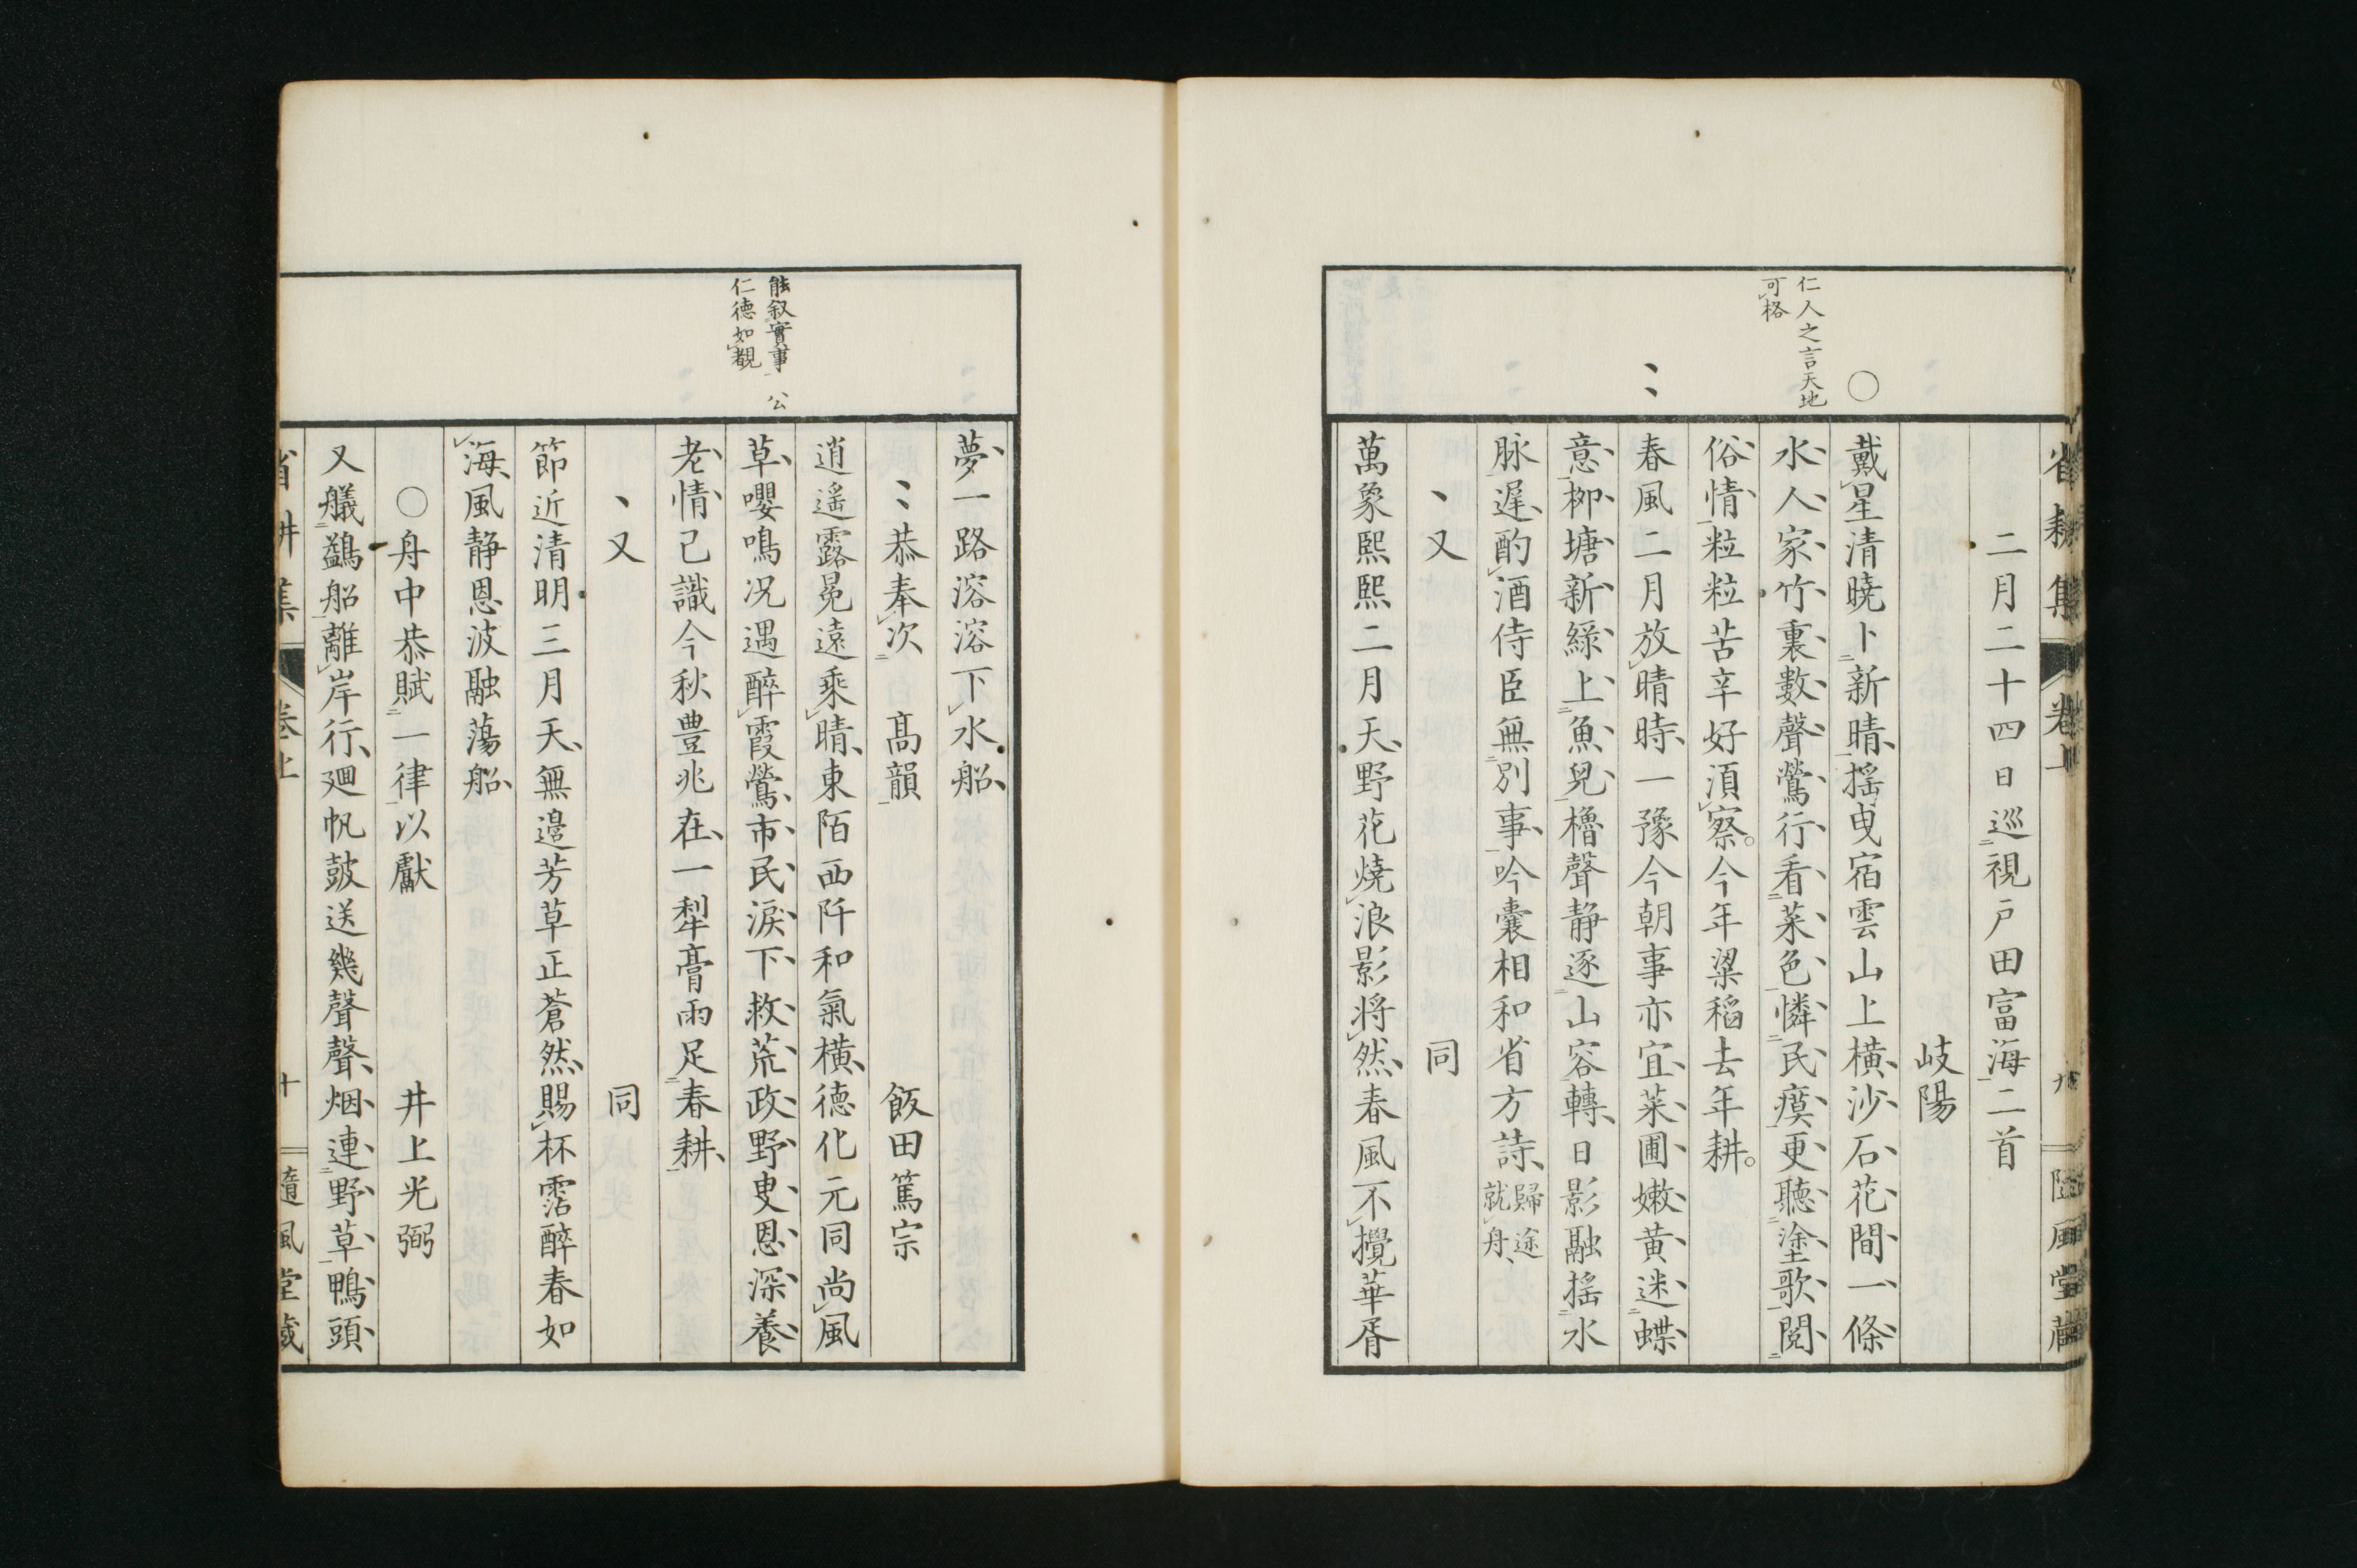 省耕集 卷上 九 隨風堂藏
二月二十四日巡視戸田富海二首
岐陽
仁人之言天地
可格
○
戴星清曉卜新晴搖曳宿雲山上橫沙石花間一條
水人家竹裏數聲鶯行看菜色憐民瘼更聽塗歌閱
俗情粒粒苦辛好須察今年粱稻去年耕
春風二月放晴時一豫今朝事亦宜菜圃嫩黃迷蝶
意柳塘新綠上魚兒櫓聲靜逐山容轉日影融搖水
脉遲酌酒侍臣無別事吟囊相和省方詩歸途
就舟
又 同
萬象熙熙二月天野花燒浪影將然春風不攪華胥
夢一路溶溶下水船
恭奉次 高韻 飯田篤宗
逍遙露冕遠乘晴東陌西阡和氣橫德化元同尚風
能叙實事 公
仁德如覩
草嚶鳴況遇醉霞鶯市民淚下救荒政野叟恩深養
老情已識今秋豊兆在一犁膏雨足春耕
又 同
節近清明三月天無邊芳草正蒼然賜杯霑醉春如
海風靜恩波融蕩船
○舟中恭賦一律以獻 井上光弼
又艤鷁船離岸行廻帆鼓送幾聲聲烟連野草鴨頭
省耕集 卷上 十 隨風堂藏